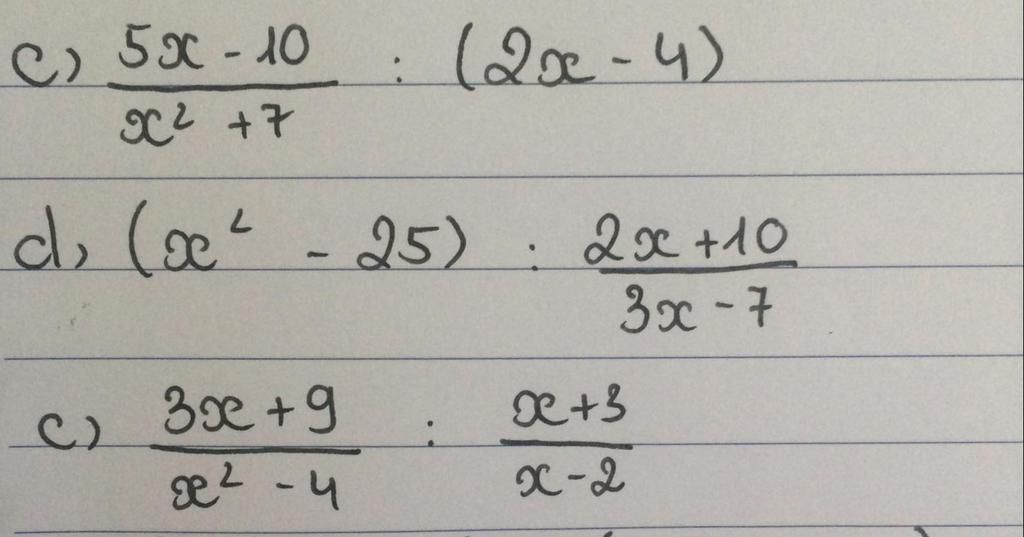 c) (5x - 10)/(x² + 7) : (2x - 4)
d, (x² - 25) : (2x + 10)/(3x - 7)
c) (3x + 9)/(x² - 4) : (x + 3)/(x - 2)